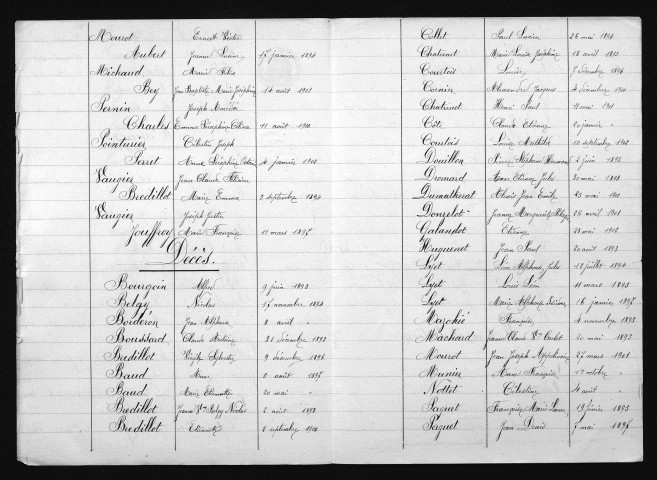 Mourot Ernest
Aubert Jeanne 17 janvier 1894
Michaud Marie
Bey Jean Baptiste Marie Joséphine 14 août 1901
Pernin Joseph
Charles Emma Séraphine 11 août 1900
Pointurier Célestin Joseph
Perret Séraphine 4 janvier
Vaugier Jean Claude
Bredillot Marie Emma 3 septembre 1894
Vaugier Joseph
Jouffroy Marie Françoise 11 mars 1895
Décès.
Bourgoin Alfred 9 juin 1893
Belgy Nicolas 17 novembre 1894
Borderon Jean 8 avril "
Boussard Claude Antoine 31 décembre 1893
Bredillot Virgile Sylvestre 9 décembre 1896
Baud 2 août 1895
Baud Marie 20 mai "
Bredillot Jeanne Vve Belgy Nicolas 2 août 1893
Bredillot Etiennette 8 septembre 1900
Collet Paul Lucien 26 mai 1894
Chatenet Marie Louise Joséphine 18 avril
Courtois Louise 7 décembre 1896
Cornier Alexandre Jacques 4 décembre 1900
Chatenet Henri Paul 11 mai 1901
Côte Claude Etienne 20 janvier "
Courtois Louise Mathilde 10 septembre 1901
Douillon Pierre Stéphane 2 juin 1893
Dromard Etienne Jules 30 mai
Dumatherat Alexis Jean Emile 23 mai 1900
Donzelot Jeanne Marguerite 26 avril 1901
Galandot Etienne 28 mai
Huguenet Jean Paul 20 août 1893
Lyet Léon Alphonse Jules 12 juillet 1894
Lyet Louis Léon 11 mars 1893
Lyet Marie Alphonse 16 janvier 1895
Françoise 4 novembre 1893
Machard Jeanne Claude Vve 20 mai 1893
Mourot Jean Joseph 27 mars 1901
Munin Françoise 17 octobre "
Nottet Célestin 4 août "
Paguet Françoise Marie 19 février 1893
Paguet Jean Denis 7 mai 1895